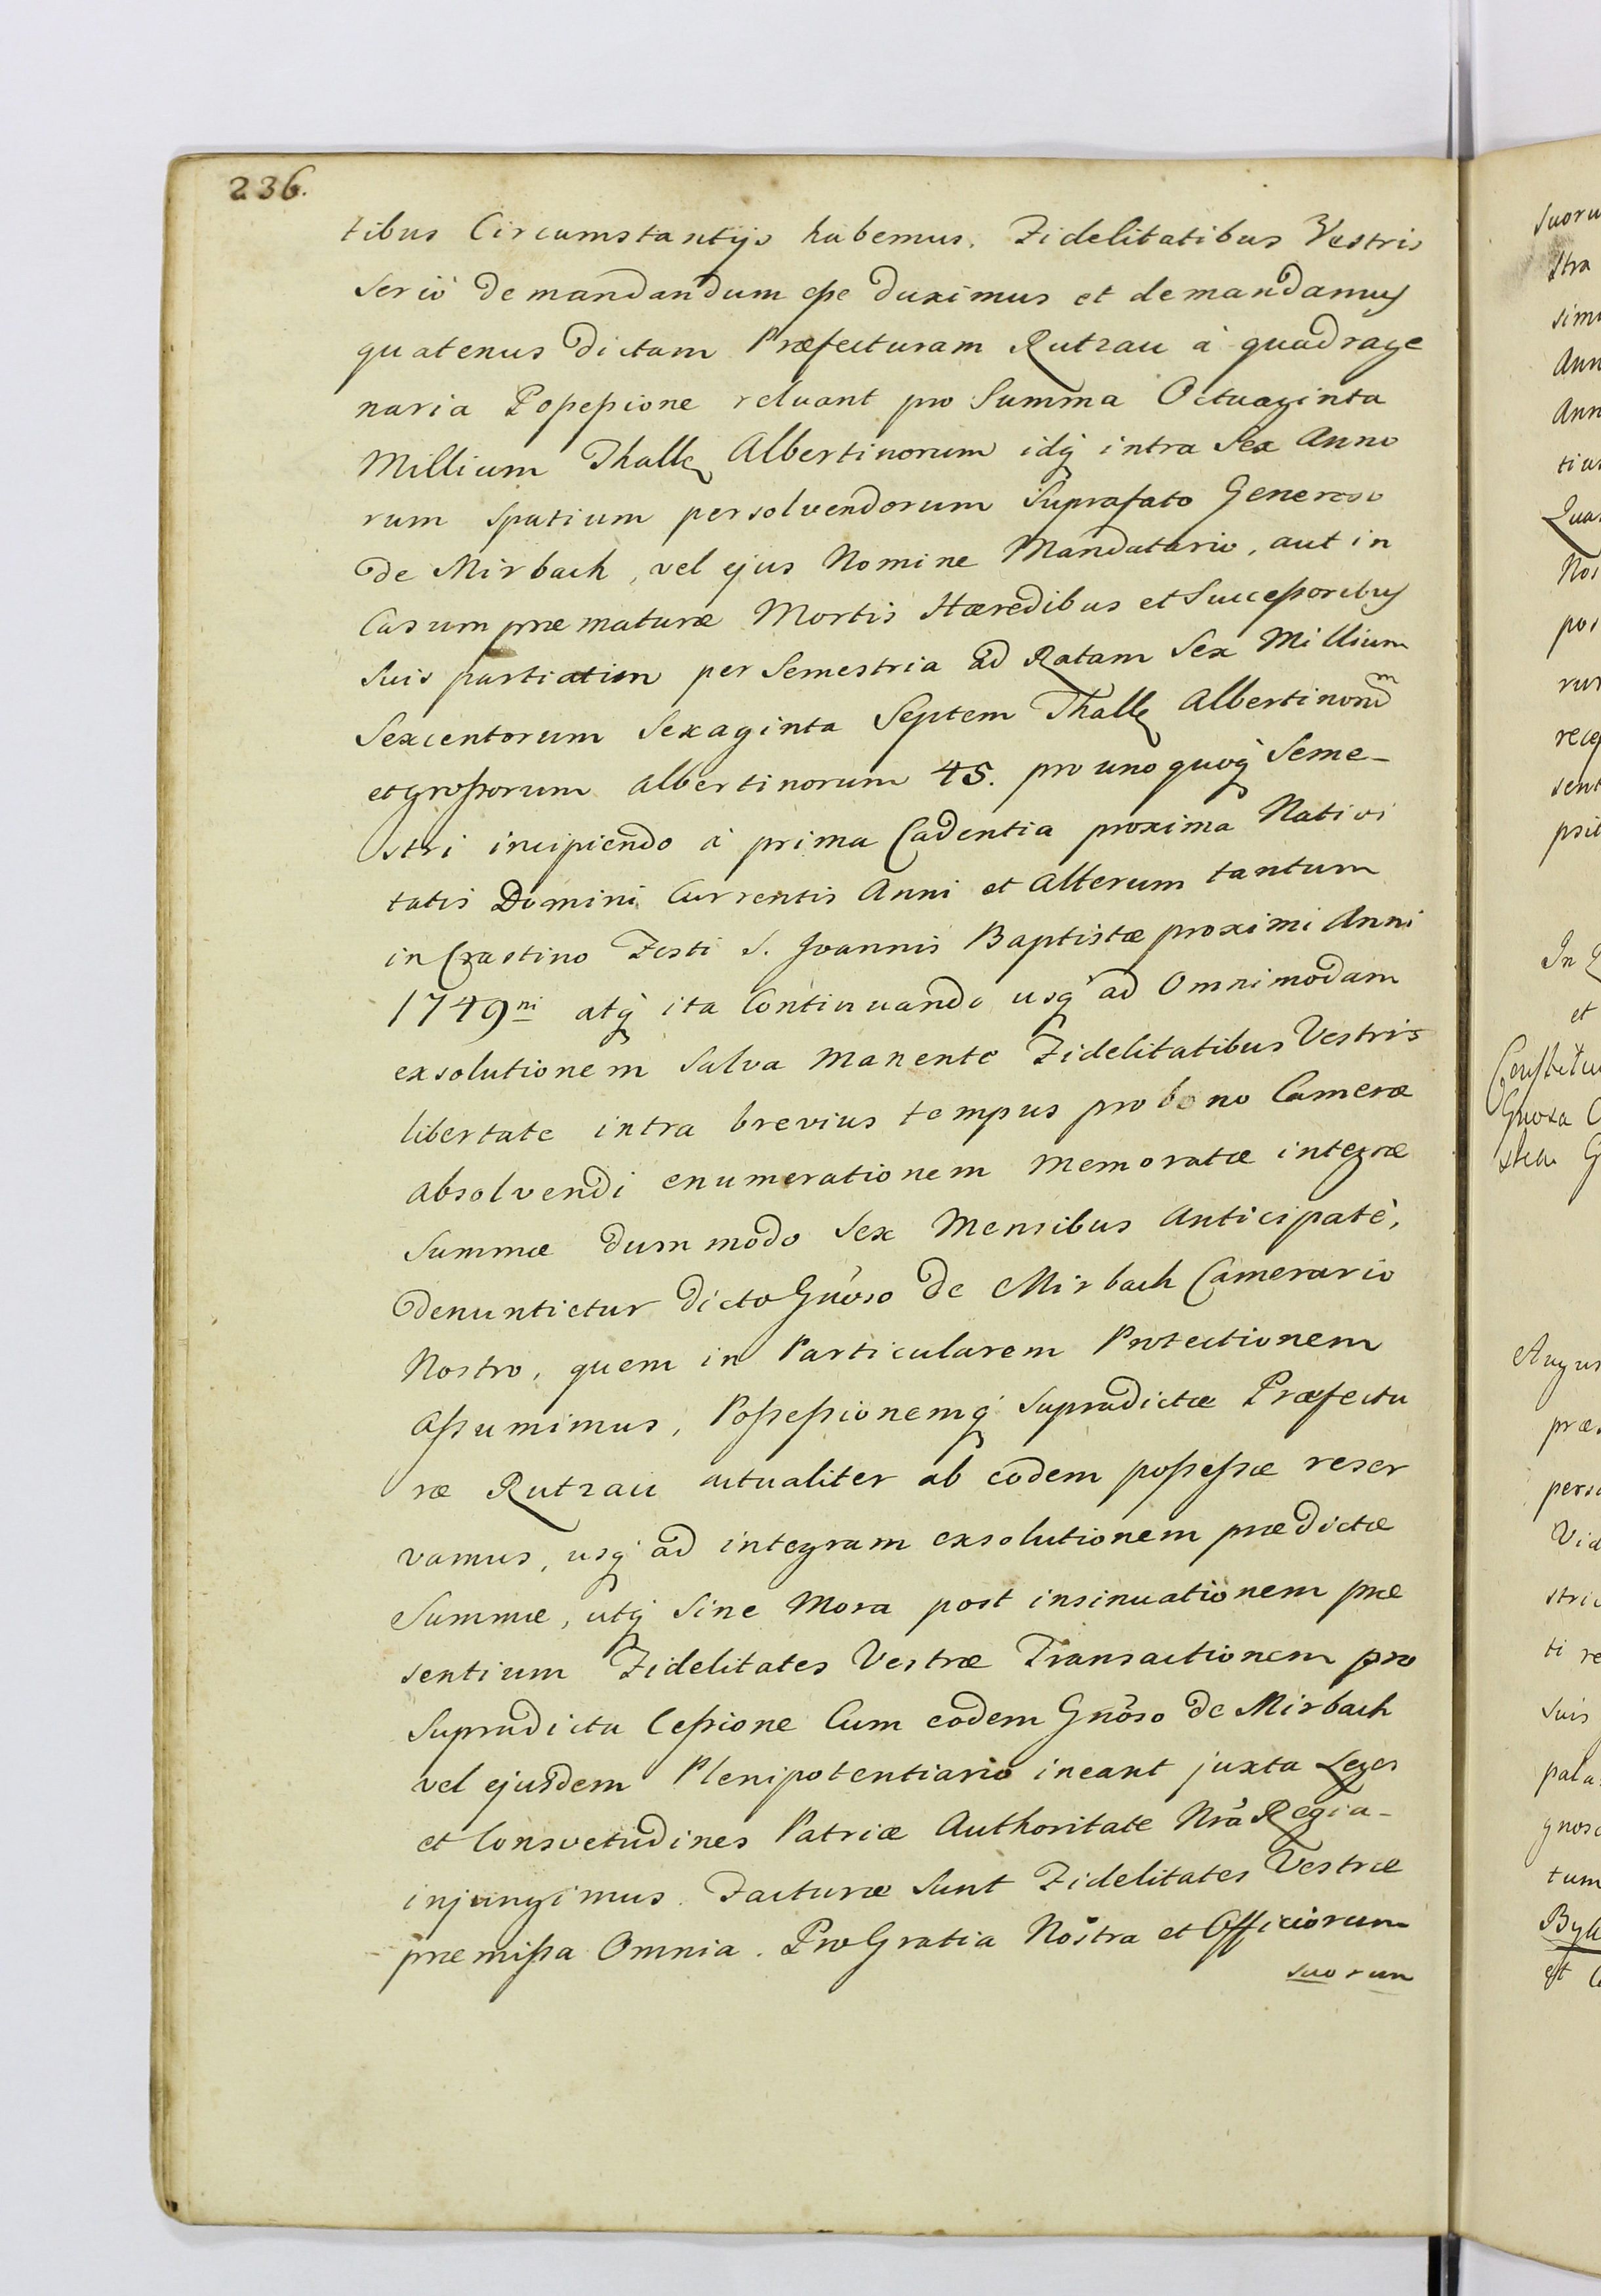 236.
tibus Circumstantijs habemus, Fidelitatibus Vestris
Seriò demandandum eße duximus et demandamus
quatenus dictam Præfecturam Rutzau à quadrage
naria Poßeßione reluant pro Summa Octuaginta
Millium Thall Albertinorum idq́ intra Sex Anno
rum spatium persolvendorum Suprafato Generoso
de Mirbach, vel ejus Nomine Mandatario, aut in
Casum præmaturæ Mortis Hæredibus et Succeßoribus
Suis partiatim per Semestria ad Ratam Sex Millium
Sexcentorum Sexaginta Septem Thall Albertinorum
et großorum Albertinorum 45. pro uno quoq́ Seme-
stri incipiendo à prima Cadentia proxima Nativi
tatis Domini Currentis Anni et Alterum tantum
in Crastino Festi S. Joannis Baptistæ proximi Anni
1749ni atq́ ita Continuando usq́ ad Omnimodam
exsolutionem Salva manente Fidelitatibus Vestris
libertate intra brevius tempus pro bono Cameræ
absolvendi enumerationem memoratæ integræ
Summæ dummodo Sex Mensibus Anticipatè,
denuntietur dicto Gnõso de Mirbach Camerario
Nostro, quem in Particularem Protectionem
Aßumimus, Poßeßionemq́ Supradictæ Præfectu
ræ Rutzau actualiter ab eodem poßeßæ reser
vamus, usq́ ad integram exsolutionem prædictæ
Summæ, utq́ Sine Mora post insinuationem præ
sentium Fidelitates Vestræ Transactionem pro
Supradicta Ceßione Cum eodem Gnõso de Mirbach
vel ejusdem Plenipotentiario ineant juxta Leges
et Consvetudines Patriæ Authoritate Nrã Regia-
injungimus. Facturæ Sunt Fidelitates Vestræ
præmißa Omnia. Pro Gratia Nostra et Officiorum
suorum